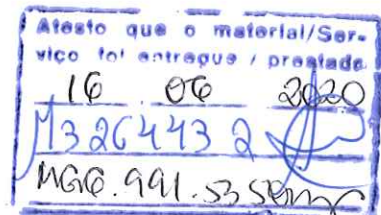 Atesto que o material/Ser-
viço foi entregue / prestado
16 06 2020
M3264432
MG6.991.53